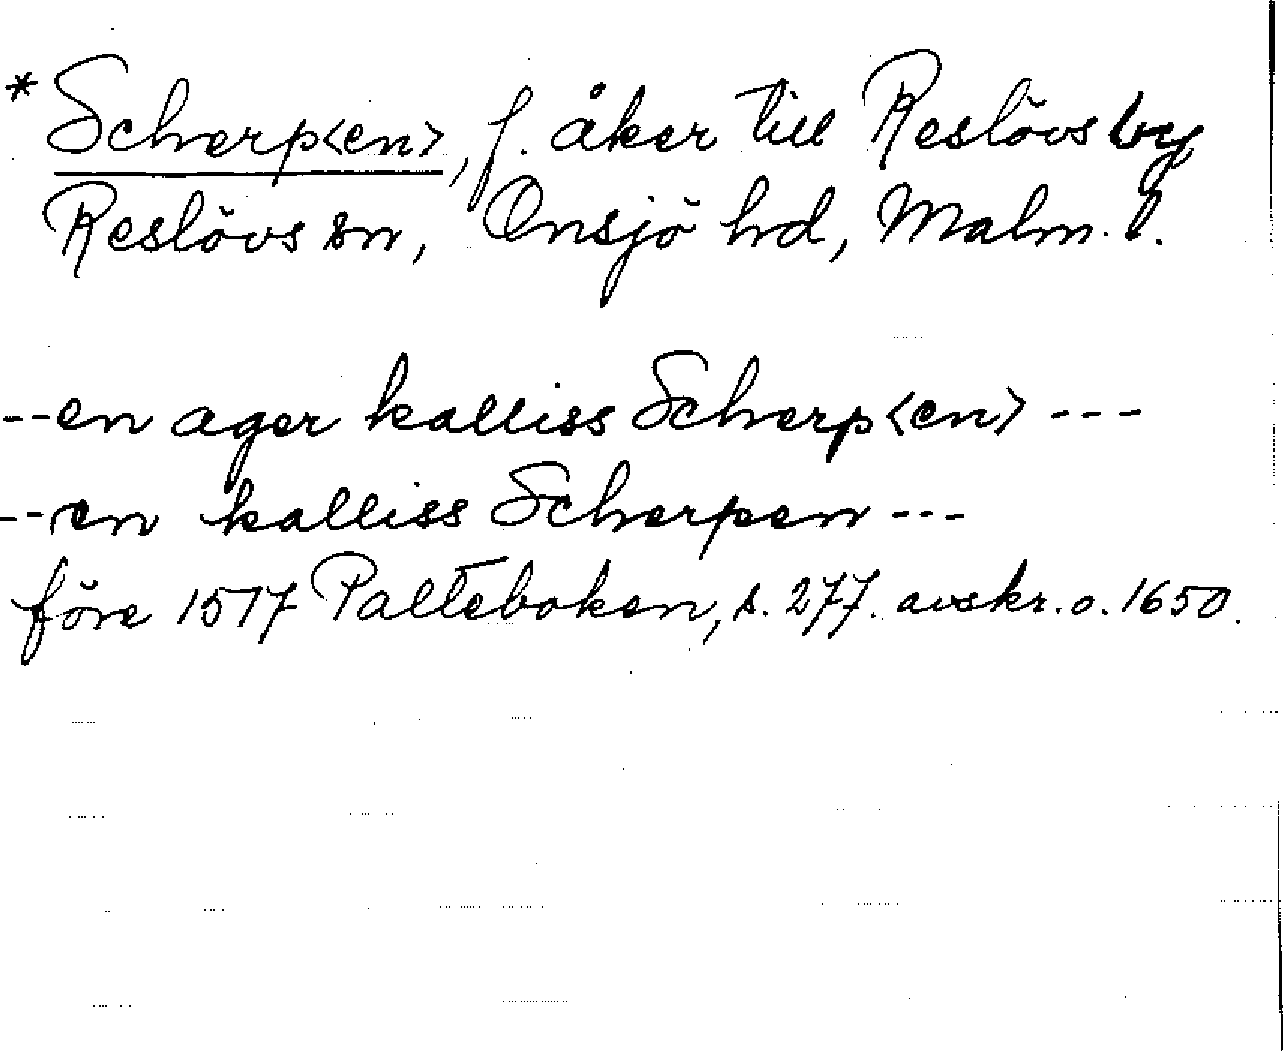 * Scherp<en>, f. åker till Reslövs by
Reslövs sn, Onsjö hd, Malm. l.
--en ager kalliss Scherp<en> ---
--en kalliss Scherpen ---
före 1517 Palteboken, s. 277. avskr. o. 1650.